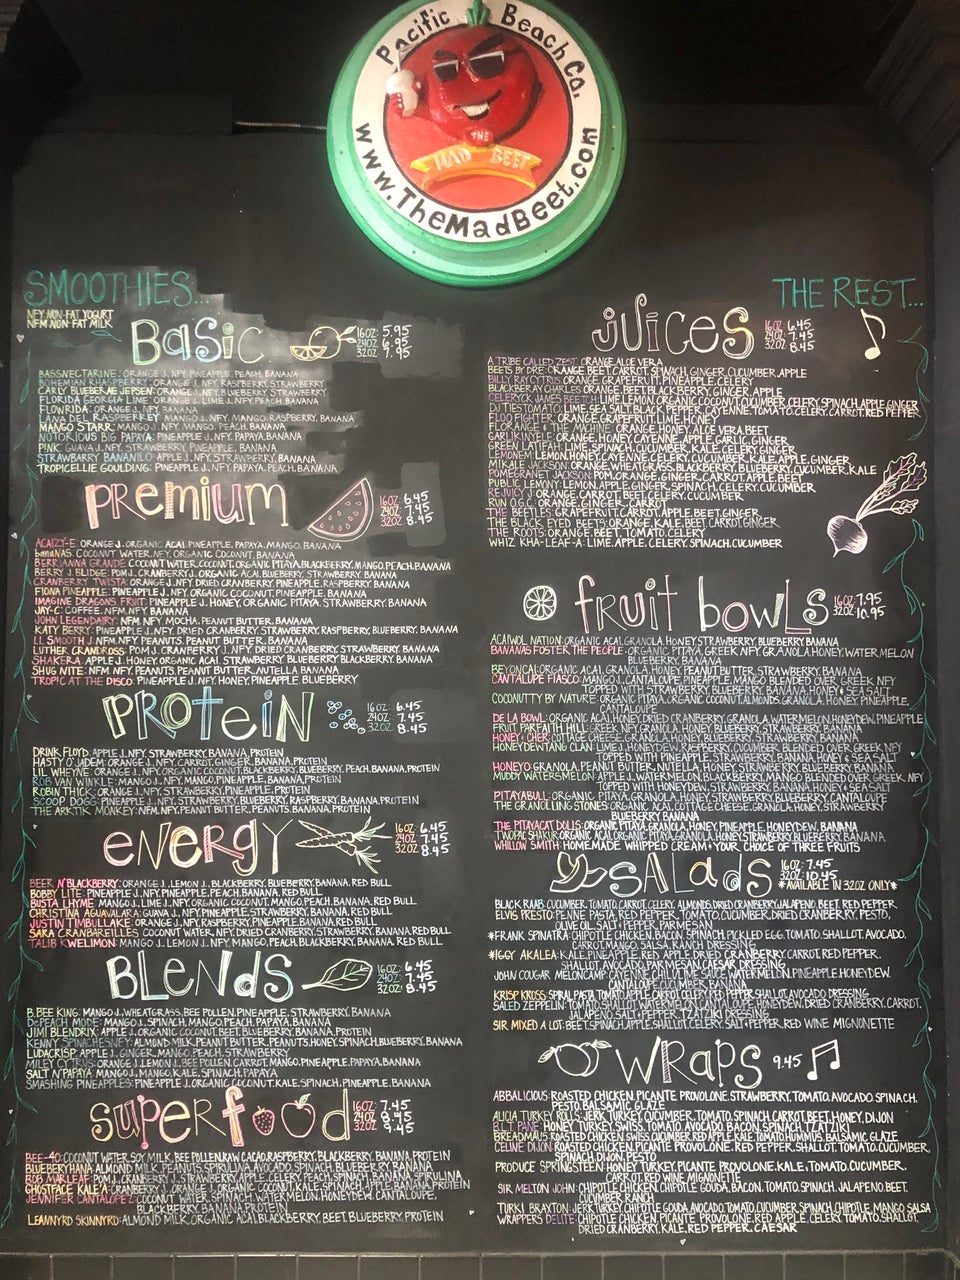 Pacific Beach Co.
THE
MAD BEET
www.TheMadBeet.com
SMOOTHIES...
NFY-NON-FAT YOGURT
NFM-NON-FAT MILK
BASIC
16OZ: 5.95
24OZ: 6.95
32OZ: 7.95
BASSNECTARINE: ORANGE J. NFY, PINEAPPLE, PEACH, BANANA
BOHEMIAN RHASPBERRY: ORANGE J. NFY, RASPBERRY, STRAWBERRY
CARLY BLUEBERAE JEPSEN: ORANGE J. NFY
FLORIDA GEORGIA LIME: ORANGE J. LIME J. NFY, PEACH, BANANA
FLOWRIDA: ORANGE J. NFY, BANANA
LANA DEL RASPBERREY: MANGO J. NFY, MANGO, RASPBERRY, BANANA
MANGO STARR: MANGO J. NFY, MANGO, PEACH, BANANA
NOTORIOUS BIG PAPAYA: PINEAPPLE J. NFY, PAPAYA, BANANA
PINK: GUAVA J. NFY, STRAWBERRY, PINEAPPLE, BANANA
STRAWBARRY BANANILO: APPLE J. NFY, STRAWBERRY, BANANA
TROPICELLIE GOULDING: PINEAPPLE J. NFY, PAPAYA, PEACH, BANANA
PREMIUM
16OZ: 6.45
24OZ: 7.45
32OZ: 8.45
ACAIZY-E: ORANGE J. ORGANIC ACAI, PINEAPPLE, PAPAYA, MANGO, BANANA
BANANAS: COCONUT WATER, NFY, ORGANIC COCONUT, BANANA
BERRIANNA GRANDE: COCONUT WATER, COCONUT, ORGANIC PITAYA, BLACKBERRY, MANGO, PEACH, BANANA
BERRY J. BLIDGE: POM J. CRANBERRY J. ORGANIC ACAI, BLUEBERRY, STRAWBERRY, BANANA
CRANBERRY TWISTA: ORANGE J. NFY, DRIED CRANBERRY, PINEAPPLE, RASPBERRY, BANANA
FIONA PINEAPPLE: PINEAPPLE J. NFY, ORGANIC COCONUT, PINEAPPLE, BANANA
IMAGINE DRAGONS FRUIT: PINEAPPLE J. HONEY, ORGANIC PITAYA, STRAWBERRY, BANANA
JAY-C: COFFEE, NFM, NFY, BANANA
JOHN LEGENDAIRY: NFM, NFY, MOCHA, PEANUT BUTTER, BANANA
KATY BERRY: PINEAPPLE J. NFY, DRIED CRANBERRY, STRAWBERRY, RASPBERRY, BLUEBERRY, BANANA
LL SMOOTH J: NFM, NFY, PEANUTS, PEANUT BUTTER, BANANA
LUTHER CRANDROSS: POM J. CRANBERRY J. NFY, DRIED CRANBERRY, STRAWBERRY, BANANA
SHAKERA: APPLE J. HONEY, ORGANIC ACAI, STRAWBERRY, BLUEBERRY, BLACKBERRY, BANANA
SHUG NITE: NFM, NFY, PEANUTS, PEANUT BUTTER, NUTELLA, BANANA
TROPIC AT THE DISCO: PINEAPPLE J. NFY, HONEY, PINEAPPLE, BLUEBERRY
PROTEIN
16OZ: 6.45
24OZ: 7.45
32OZ: 8.45
DRINK FLOYD: APPLE J. NFY, STRAWBERRY, BANANA, PROTEIN
HASTY O'JADEM: ORANGE J. NFY, CARROT, GINGER, BANANA, PROTEIN
LIL WHEYNE: ORANGE J. NFY, ORGANIC COCONUT, BLACKBERRY, BLUEBERRY, PEACH, BANANA, PROTEIN
ROB VAN WINKLE: MANGO J. NFY, MANGO, PINEAPPLE, BANANA, PROTEIN
ROBIN THICK: ORANGE J. NFY, STRAWBERRY, PINEAPPLE, PROTEIN
SCOOP DOGG: PINEAPPLE J. NFY, STRAWBERRY, BLUEBERRY, RASPBERRY, BANANA, PROTEIN
THE ARKTIK MONKEY: NFM, NFY, PEANUT BUTTER, PEANUTS, BANANA, PROTEIN
ENERGY
16OZ: 6.45
24OZ: 7.45
32OZ: 8.45
BEER N' BLACKBERRY: ORANGE J. LEMON J. BLACKBERRY, BLUEBERRY, BANANA, RED BULL
BOBBY LITE: PINEAPPLE J. NFY, PINEAPPLE, PEACH, BANANA, RED BULL
BUSTA LHYME: MANGO J. LIME J. NFY, ORGANIC COCONUT, MANGO, PEACH, BANANA, RED BULL
CHRISTINA AGUAVALARA: GUAVA J. NFY, PINEAPPLE, STRAWBERRY, BANANA, RED BULL
JUSTIN TIMBULLAKE: ORANGE J. NFY, RASPBERRY, PINEAPPLE, BANANA, RED BULL
SARA CRANBAREILLES: COCONUT WATER, NFY, DRIED CRANBERRY, STRAWBERRY, BANANA, RED BULL
TALIB KWELIMON: MANGO J. LEMON J. NFY, MANGO, PEACH, BLACKBERRY, BANANA, RED BULL
BLENDS
16OZ: 6.45
24OZ: 7.45
32OZ: 8.45
B.BEE KING: MANGO J. WHEATGRASS, BEE POLLEN, PINEAPPLE, STRAWBERRY, BANANA
DEPEACH MODE: MANGO J. SPINACH, MANGO, PEACH, PAPAYA, BANANA
JIMI BLENDRIX: APPLE J. ORGANIC COCONUT, BEET, BLUEBERRY, BANANA, PROTEIN
KENNY SPINACHESNEY: ALMOND MILK, PEANUT BUTTER, PEANUTS, HONEY, SPINACH, BLUEBERRY, BANANA
LUDACRISP: APPLE J. GINGER, MANGO, PEACH, STRAWBERRY
MILEY CYTRUS: ORANGE J. LEMON J. BEE POLLEN, CARROT, MANGO, PINEAPPLE, PAPAYA, BANANA
SALT N' PAPAYA: MANGO J. MANGO, KALE, SPINACH, PAPAYA
SMASHING PINEAPPLES: PINEAPPLE J. ORGANIC COCONUT, KALE, SPINACH, PINEAPPLE, BANANA
SUPERFOOD
16OZ: 7.45
24OZ: 8.45
32OZ: 9.45
BEE-40: COCONUT WATER, SOY MILK, BEE POLLEN, RAW CACAO, RASPBERRY, BLACKBERRY, BANANA, PROTEIN
BLUEBERYHANA: ALMOND MILK, PEANUTS, SPIRULINA, AVOCADO, SPINACH, BLUEBERRY, BANANA
BOB MARLEAF: POM J. CRANBERRY J. STRAWBERRY, APPLE, CELERY, PEACH, SPINACH, BANANA, SPIRULINA
GHOSTFACE KALE'A: CRANBERRY J. ORANGE J. ORGANIC COCONUT, KALE, SPINACH, APPLE, BANANA, PROTEIN
JENNIFER CANTALOPEZ: COCONUT WATER, SPINACH, WATERMELON, HONEYDEW, CANTALOUPE,
BLACKBERRY, BANANA, PROTEIN
LEANNYRD SKINNYRD: ALMOND MILK, ORGANIC ACAI, BLACKBERRY, BEET, BLUEBERRY, PROTEIN
THE REST...
JUICES
16OZ: 6.45
24OZ: 7.45
32OZ: 8.45
A TRIBE CALLED ZEST: ORANGE, ALOE VERA
BEETS BY DRE: ORANGE, BEET, CARROT, SPINACH, GINGER, CUCUMBER, APPLE
BILLY RAY CYTRUS: ORANGE, GRAPEFRUIT, PINEAPPLE, CELERY
BLACKBERAY CHARLES: ORANGE, BEET, BLACKBERRY, GINGER, APPLE
CELERYCK JAMES BEETCH: LIME, LEMON, ORGANIC COCONUT, CUCUMBER, CELERY, SPINACH, APPLE, GINGER
DJ TIESTOMATO: LIME, SEA SALT, BLACK PEPPER, CAYENNE, TOMATO, CELERY, CARROT, RED PEPPER
FLOJO: PEPPER, ORANGE, GRAPEFRUIT, HONEY
FLORANGE & THE MACHINE: ORANGE, HONEY, ALOE VERA, BEET
GARLIKINYELE: ORANGE, HONEY, CAYENNE, APPLE, GARLIC, GINGER
GREEN LATIFAH: LIME, SPINACH, CUCUMBER, KALE, CELERY, GINGER
LEMONEM: LEMON, HONEY, CAYENNE, CELERY, CUCUMBER, KALE, APPLE, GINGER
MIKALE JACKSON: ORANGE, WHEATGRASS, BLACKBERRY, BLUEBERRY, CUCUMBER, KALE
POMEGRANET JACKSON: POM, ORANGE, GINGER, CARROT, APPLE, BEET
PUBLIC LEMONY: LEMON, APPLE, GINGER, SPINACH, CELERY, CUCUMBER
REJUICY J: ORANGE, CARROT, BEET, CELERY, CUCUMBER
RUN O.G.C: ORANGE, GINGER, CARROT
THE BEETLES: GRAPEFRUIT, CARROT, APPLE, BEET, GINGER
THE BLACK EYED BEETS: ORANGE, KALE, BEET, CARROT, GINGER
THE ROOTS: ORANGE, BEET, TOMATO, CELERY
WHIZ KHA-LEAF-A: LIME, APPLE, CELERY, SPINACH, CUCUMBER
FRUIT BOWLS
16OZ 7.95
32OZ 10.95
ACAIWOL NATION: ORGANIC ACAI, GRANOLA, HONEY, STRAWBERRY, BLUEBERRY, BANANA
BANANAS FOSTER THE PEOPLE: ORGANIC PITAYA, GREEK NFY, GRANOLA, HONEY, WATERMELON
BLUEBERRY, BANANA
BEYONCAI: ORGANIC ACAI, GRANOLA, HONEY, PEANUT BUTTER, STRAWBERRY, BANANA
CANTALUPE FIASCO: MANGO J. CANTALOUPE, PINEAPPLE, MANGO BLENDED OVER GREEK NFY
TOPPED WITH STRAWBERRY, BLUEBERRY, BANANA, HONEY & SEA SALT
COCONUTTY BY NATURE: ORGANIC PITAYA, ORGANIC COCONUT, ALMONDS, GRANOLA, HONEY, PINEAPPLE,
CANTALOUPE
DE LA BOWL: ORGANIC ACAI, HONEY, DRIED CRANBERRY, GRANOLA, WATERMELON, HONEYDEW, PINEAPPLE
FRUIT PARFAITH HILL: GREEK NFY, GRANOLA, HONEY, STRAWBERRY, BLUEBERRY, BANANA
HONEY & CHER: COTTAGE CHEESE, GRANOLA, HONEY, BLUEBERRY, BANANA
HONEYDEWTANG CLAN: LIME J. HONEYDEW, RASPBERRY, CUCUMBER BLENDED OVER GREEK NFY
TOPPED WITH PINEAPPLE, STRAWBERRY, BANANA, HONEY & SEA SALT
HONEYO: GRANOLA, PEANUT BUTTER, NUTELLA, HONEY, STRAWBERRY, BLUEBERRY, BANANA
MUDDY WATERSMELON: APPLE J. WATERMELON, BLACKBERRY, MANGO BLENDED OVER GREEK NFY
TOPPED WITH HONEYDEW, STRAWBERRY, BANANA, HONEY & SEA SALT
PITAYABULL: ORGANIC PITAYA, GRANOLA, HONEY, STRAWBERRY, BLUEBERRY, CANTALOUPE
THE GRANOLLING STONES: ORGANIC ACAI, COTTAGE CHEESE, GRANOLA, HONEY, STRAWBERRY
BLUEBERRY, BANANA
THE PITAYACAT DOLLS: ORGANIC PITAYA, GRANOLA, HONEY, PINEAPPLE, HONEYDEW, BANANA
TWOPAC SHAKUR: ORGANIC ACAI, ORGANIC PITAYA, GRANOLA, HONEY, STRAWBERRY, BLUEBERRY, BANANA
WHILLOW SMITH: HOMEMADE WHIPPED CREAM & YOUR CHOICE OF THREE FRUITS
SALADS
16OZ: 7.45
32OZ: 10.45
*AVAILABLE IN 32OZ ONLY*
BLACK RAAB: CUCUMBER, TOMATO, CARROT, CELERY, ALMONDS, DRIED CRANBERRY, JALAPENO, BEET, RED PEPPER
ELVIS PRESTO: PENNE PASTA, RED PEPPER, TOMATO, CUCUMBER, DRIED CRANBERRY, PESTO,
OLIVE OIL, SALT & PEPPER, PARMESAN
*FRANK SPINATRA: CHIPOTLE CHICKEN, BACON, SPINACH, PICKLED EGG, TOMATO, SHALLOT, AVOCADO,
CARROT, MANGO SALSA, RANCH DRESSING
*IGGY AKALEA: KALE, PINEAPPLE, RED APPLE, DRIED CRANBERRY, CARROT, RED PEPPER,
SHALLOT, AVOCADO, PARMESAN, CAESAR DRESSING
JOHN COUGAR MELONCAMP: CAYENNE, CHILI LIME SAUCE, WATERMELON, PINEAPPLE, HONEYDEW,
CANTALOUPE, CUCUMBER, BANANA
KRISP KROSS: SPIRAL PASTA, TOMATO, APPLE, CARROT, CELERY, RED PEPPER, SHALLOT, AVOCADO, DRESSING
SALED ZEPPELIN: TOMATO, SHALLOT, WATERMELON, CANTALOUPE, HONEYDEW, DRIED CRANBERRY, CARROT,
JALAPENO, SALT & PEPPER, TZATZIKI DRESSING
SIR MIXED A LOT: BEET, SPINACH, APPLE, SHALLOT, CELERY, SALT & PEPPER, RED WINE MIGNONETTE
WRAPS
9.45
ABBALICIOUS: ROASTED CHICKEN, PICANTE PROVOLONE, STRAWBERRY, TOMATO, AVOCADO, SPINACH,
PESTO, BALSAMIC GLAZE
ALICIA TURKEY ROLLS: JERK TURKEY, CUCUMBER, TOMATO, SPINACH, CARROT, BEET, HONEY, DIJON
B.L.T PANE: HONEY TURKEY, SWISS, TOMATO, AVOCADO, BACON, SPINACH, TZATZIKI
BREADMAU5: ROASTED CHICKEN, SWISS, CUCUMBER, RED APPLE, KALE, TOMATO, HUMMUS, BALSAMIC GLAZE
CELINE DIJON: ROASTED CHICKEN, PICANTE PROVOLONE, RED PEPPER, SHALLOT, TOMATO, CUCUMBER,
SPINACH, DIJON, PESTO
PRODUCE SPRINGSTEEN: HONEY TURKEY, PICANTE PROVOLONE, KALE, TOMATO, CUCUMBER,
CARROT, RED WINE MIGNONETTE
SIR MELTON JOHN: CHIPOTLE CHICKEN, CHIPOTLE GOUDA, BACON, TOMATO, SPINACH, JALAPENO, BEET,
CUCUMBER, RANCH
TURKI BRAXTON: JERK TURKEY, CHIPOTLE GOUDA, AVOCADO, TOMATO, CUCUMBER, SPINACH, CHIPOTLE, MANGO SALSA
WRAPPERS DELITE: CHIPOTLE CHICKEN, PICANTE PROVOLONE, RED APPLE, CELERY, TOMATO, SHALLOT,
DRIED CRANBERRY, KALE, RED PEPPER, CAESAR